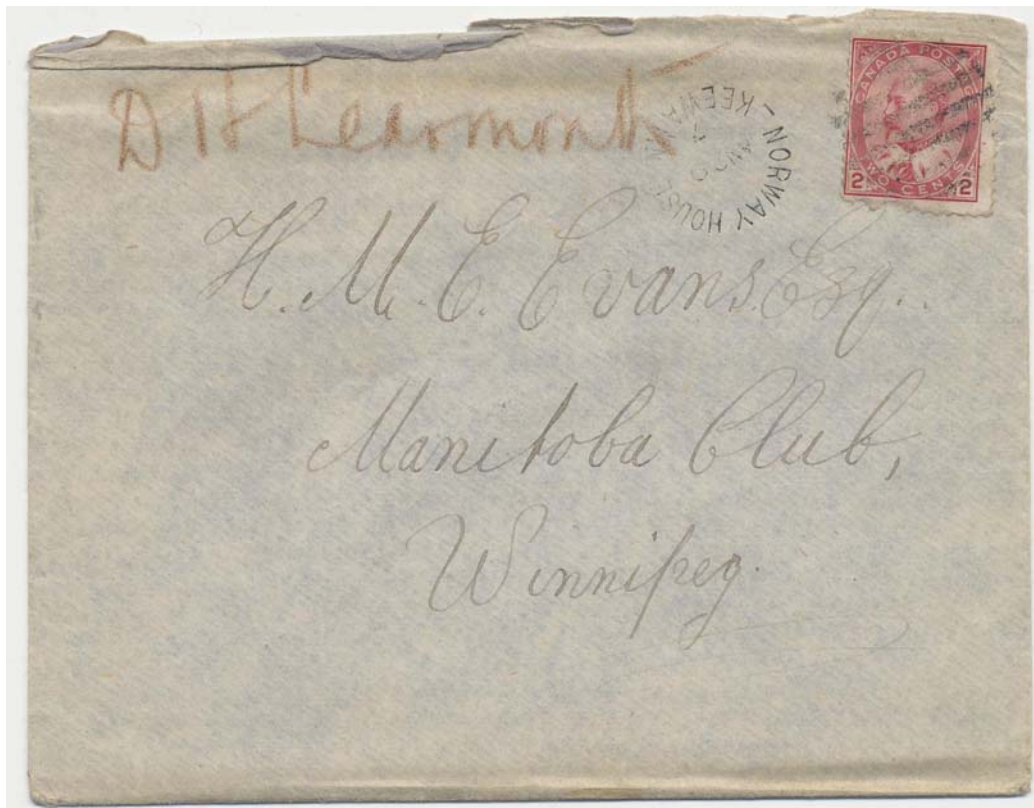 D H Learmonth
NORWAY HOUSE
KEEWA
CANADA POSTAGE
TWO CENTS
2 2
H. M. E. Evans. Esq..
Manitoba Club,
Winnipeg.